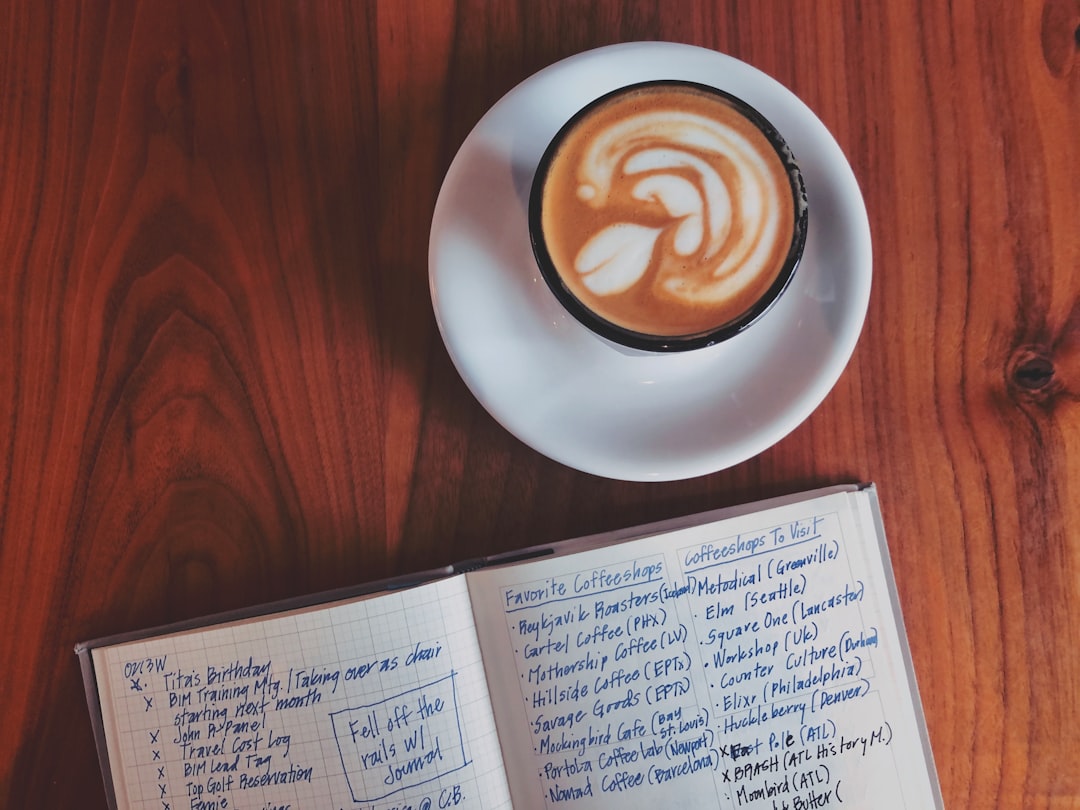 Tita's Birthday
BIM Training Mtg. / Taking over as chair
starting next month
John R Panel
Travel Cost Log
BIM Lead Tag
Top Golf Reservation
Ernie
@ C.B.
Fell off the
rails w/
Journal
Favorite Coffeeshops
Reykjavik Roasters (Iceland)
Cartel Coffee (PHX)
Mothership Coffee (LV)
Hillside Coffee (EPTX)
Savage Goods (EPTX)
Mockingbird Cafe (Bay
St. Louis)
Portola Coffee Lab (Newport)
Nomad Coffee (Barcelona)
Coffeeshops To Visit
Methodical (Greenville)
Elm (Seattle)
Square One (Lancaster)
Workshop (UK)
Counter Culture (Durham)
Elixr (Philadelphia)
Huckleberry (Denver)
x East Pole (ATL)
x BRASH (ATL History M.)
Moonbird (ATL)
Butter (